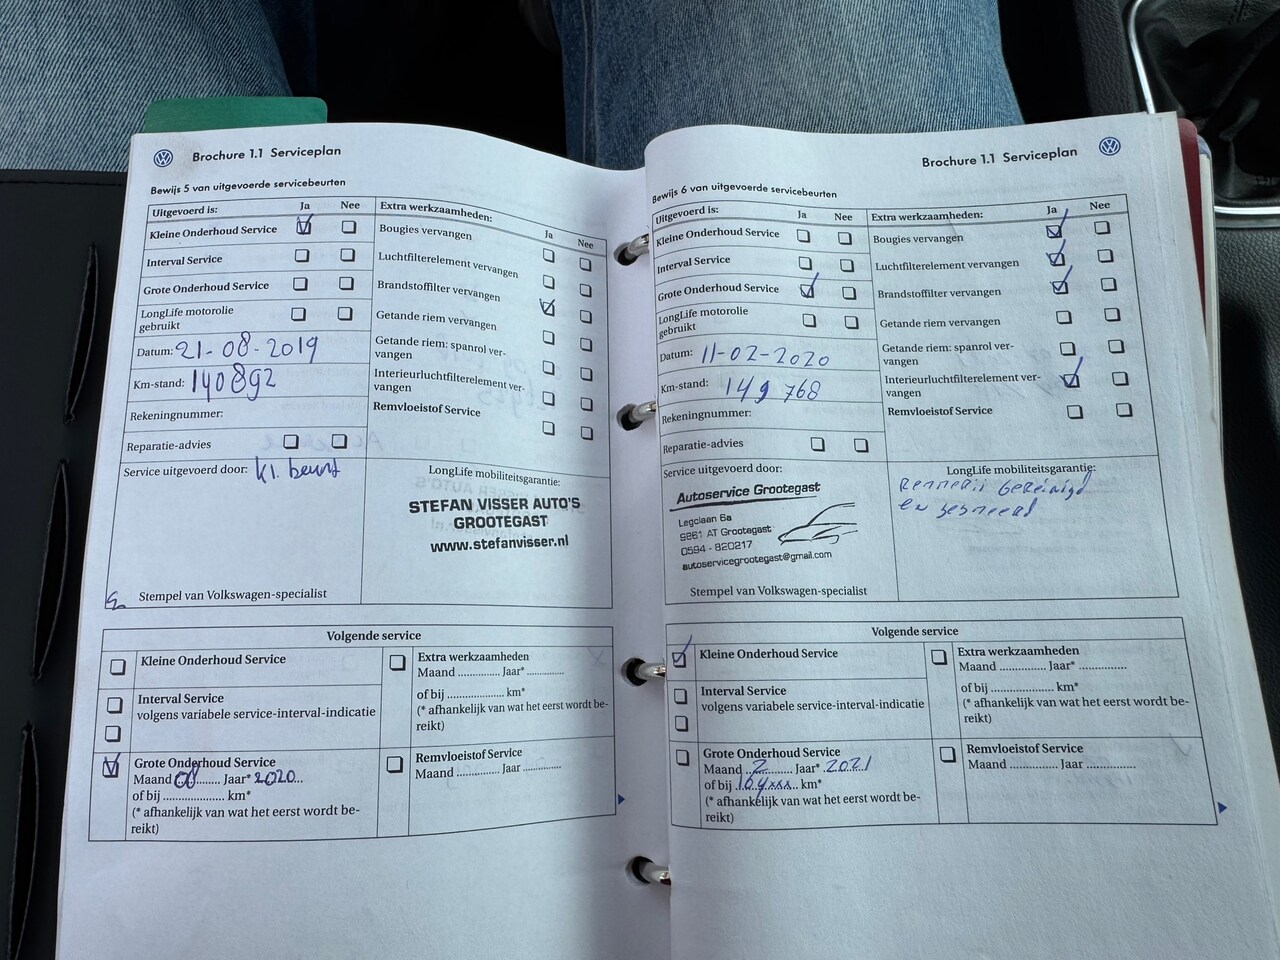 Brochure 1.1 Serviceplan
Bewijs 5 van uitgevoerde servicebeurten
Uitgevoerd is:
Ja
Nee
Kleine Onderhoud Service
Interval Service
Grote Onderhoud Service
LongLife motorolie
gebruikt
Datum: 21-08-2019
Km-stand: 140892
Rekeningnummer:
Reparatie-advies
Extra werkzaamheden:
Ja
Nee
Bougies vervangen
Luchtfilterelement vervangen
Brandstoffilter vervangen
Getande riem vervangen
Getande riem: spanrol ver-
vangen
Interieurluchtfilterelement ver-
vangen
Remvloeistof Service
Service uitgevoerd door: kl. beurt
Stempel van Volkswagen-specialist
LongLife mobiliteitsgarantie:
STEFAN VISSER AUTO'S
GROOTEGAST
www.stefanvisser.nl
Volgende service
Kleine Onderhoud Service
Interval Service
volgens variabele service-interval-indicatie
Grote Onderhoud Service
Maand 08 Jaar* 2020
of bij .................... km*
(* afhankelijk van wat het eerst wordt be-
reikt)
Extra werkzaamheden
Maand .............. Jaar* ............
of bij .................... km*
(* afhankelijk van wat het eerst wordt be-
reikt)
Remvloeistof Service
Maand .............. Jaar ............
Brochure 1.1 Serviceplan
Bewijs 6 van uitgevoerde servicebeurten
Uitgevoerd is:
Ja
Nee
Kleine Onderhoud Service
Interval Service
Grote Onderhoud Service
LongLife motorolie
gebruikt
Datum: 11-02-2020
Km-stand: 149 768
Rekeningnummer:
Reparatie-advies
Extra werkzaamheden:
Ja
Nee
Bougies vervangen
Luchtfilterelement vervangen
Brandstoffilter vervangen
Getande riem vervangen
Getande riem: spanrol ver-
vangen
Interieurluchtfilterelement ver-
vangen
Remvloeistof Service
Service uitgevoerd door:
Autoservice Grootegast
Legolaan 6a
9861 AT Grootegast
0594 - 820217
autoservicegrootegast@gmail.com
Stempel van Volkswagen-specialist
LongLife mobiliteitsgarantie:
en
Volgende service
Kleine Onderhoud Service
Interval Service
volgens variabele service-interval-indicatie
Grote Onderhoud Service
Maand 2 Jaar* 2021
of bij 164xxx km*
(* afhankelijk van wat het eerst wordt be-
reikt)
Extra werkzaamheden
Maand .............. Jaar* ..............
of bij .................... km*
(* afhankelijk van wat het eerst wordt be-
reikt)
Remvloeistof Service
Maand .............. Jaar ..............